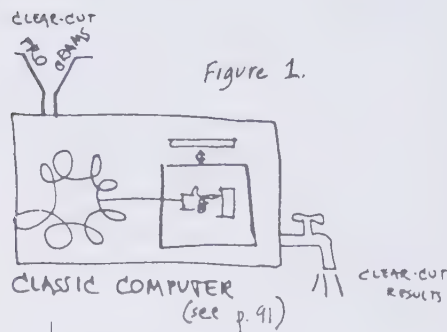 CLEAR-CUT
PROGRAMS
Figure 1.
CLASSIC COMPUTER
(see p. 91)
CLEAR-CUT
RESULTS